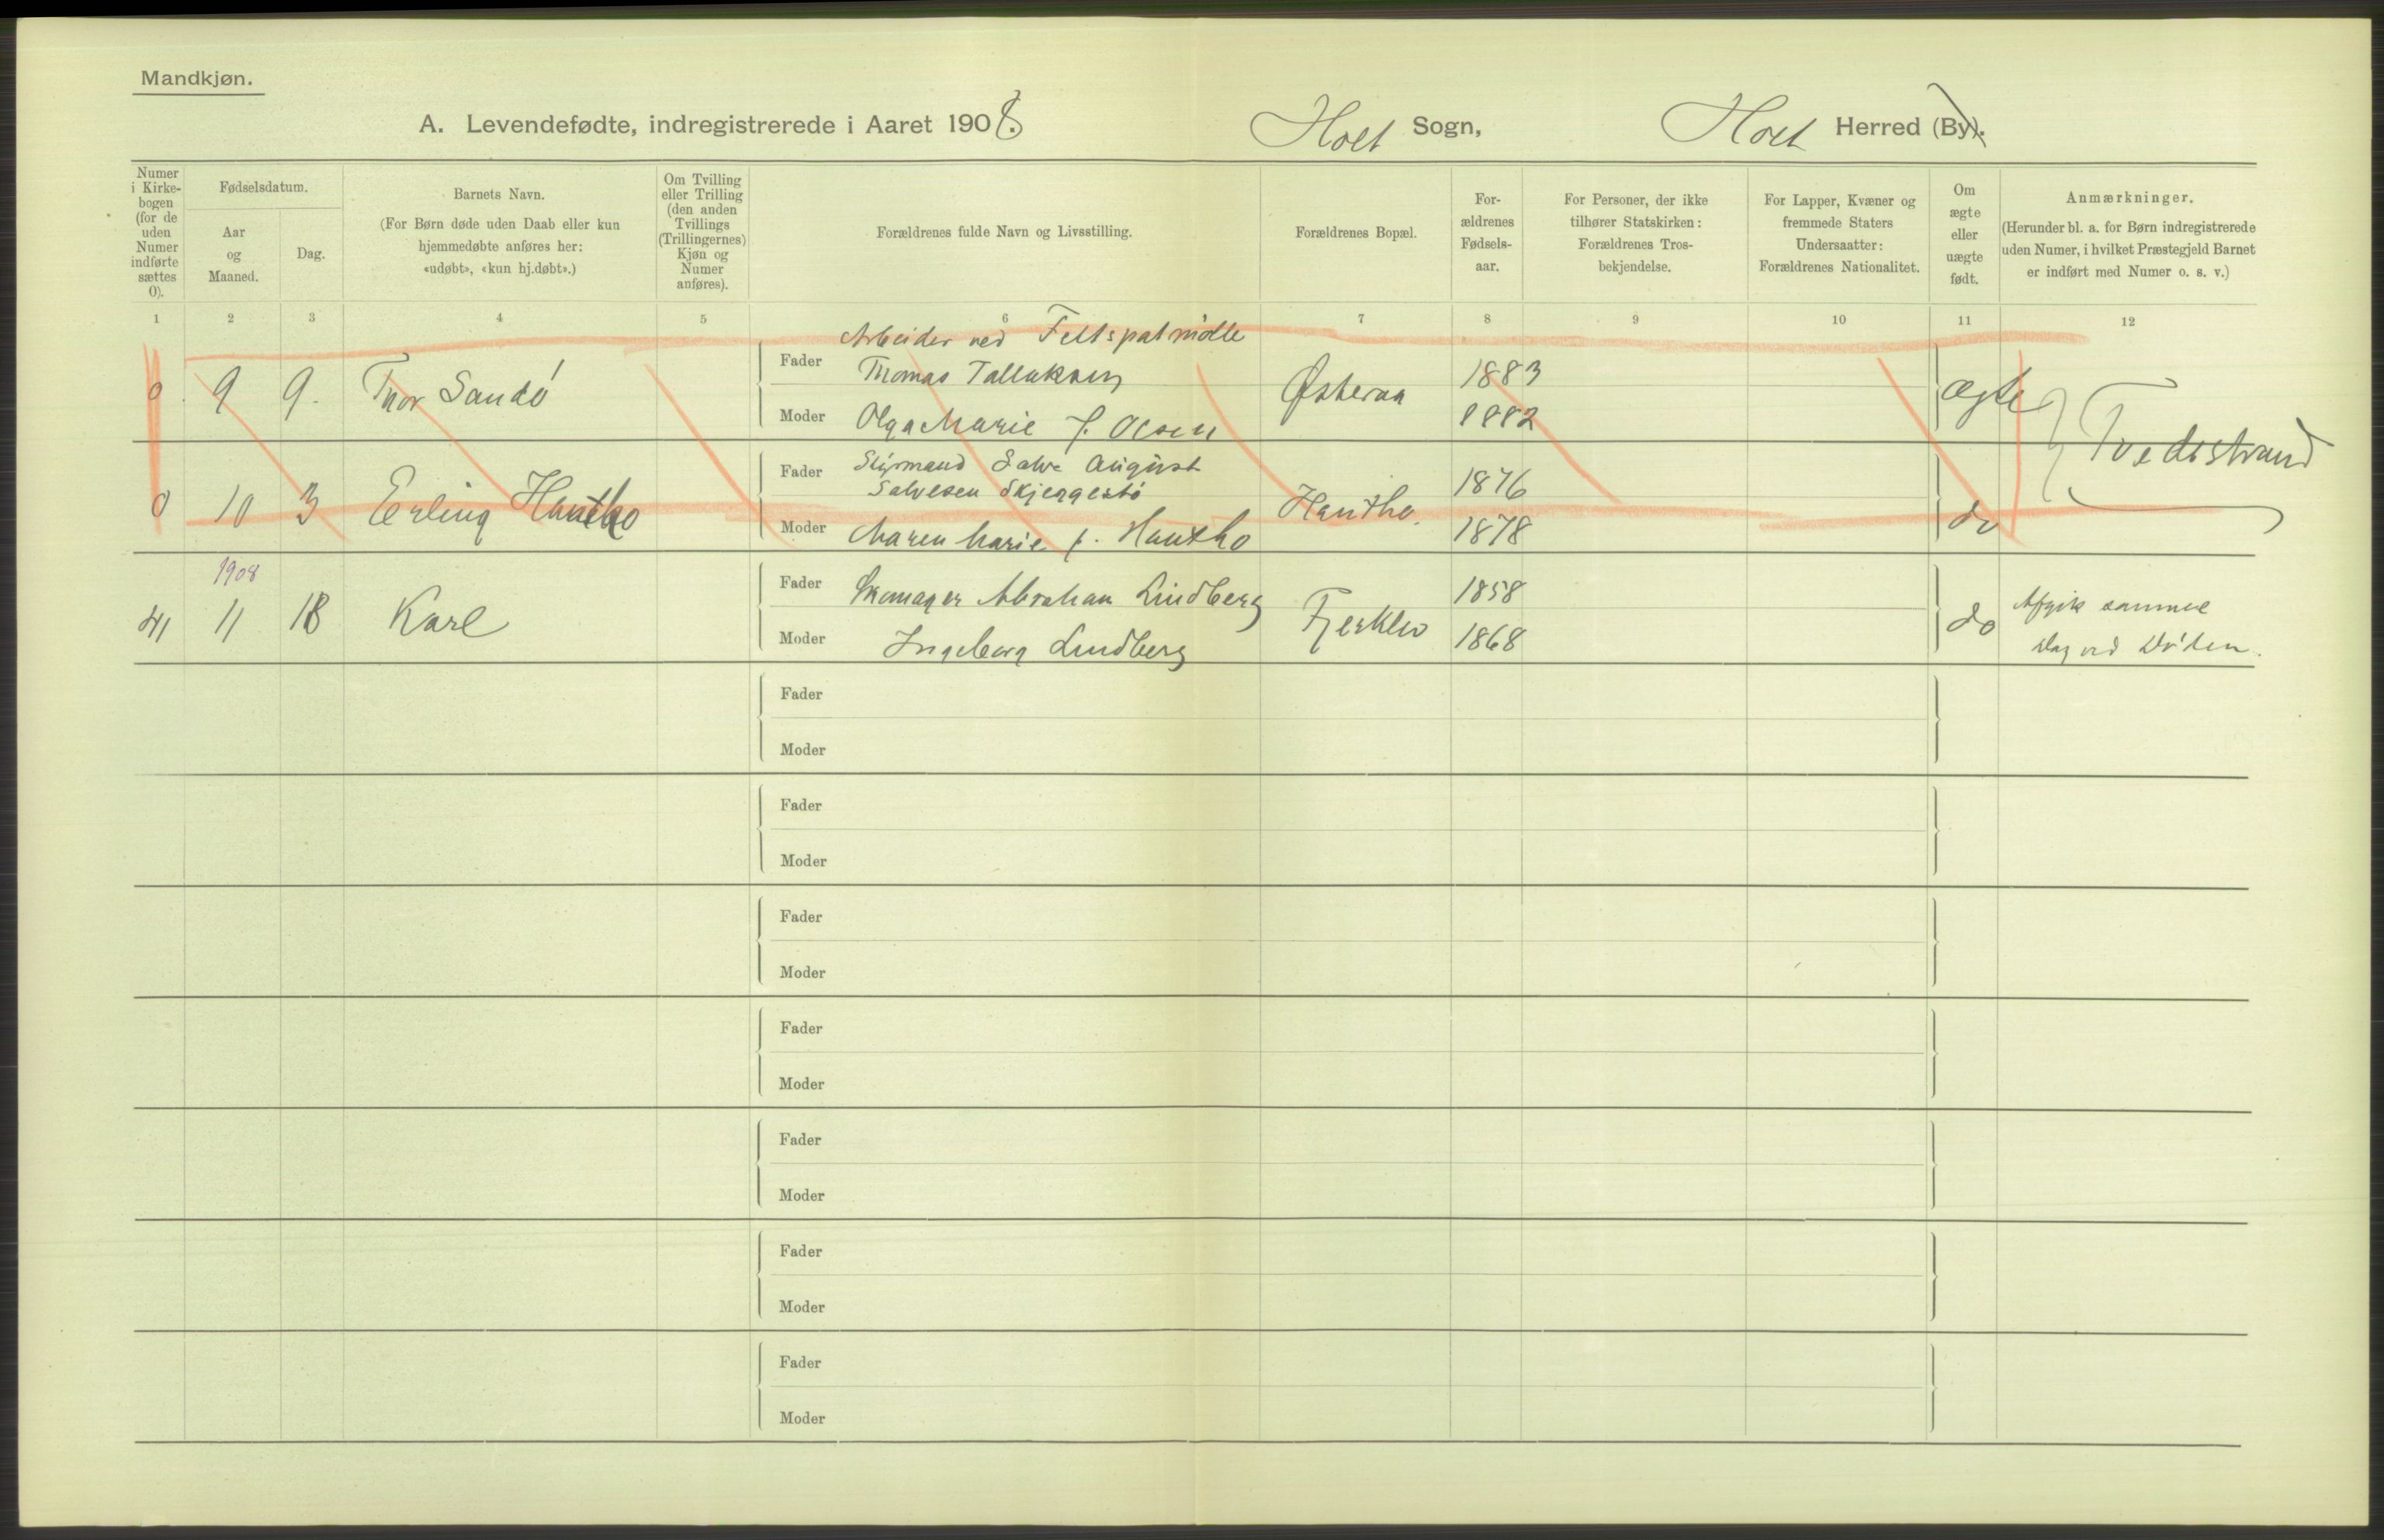 Mandkjøn.
A. Levendefødte, indregistrerede i Aaret 1908. Holt Sogn, Holt Herred (By).
Numer i Kirkebogen (for de uden Numer indførte sættes 0).
Fødselsdatum.
Aar og Maaned.
Dag.
Barnets Navn.
(For Børn døde uden Daab eller kun
hjemmedøbte anføres her:
«udøbt», «kun hj.døbt».)
Om Tvilling
eller Trilling
(den anden
Tvillings
(Trillingernes)
Kjøn og
Numer
anføres).
Forældrenes fulde Navn og Livsstilling.
Forældrenes Bopæl.
For-
ældrenes
Fødsels-
aar.
For Personer, der ikke
tilhører Statskirken:
Forældrenes Tros-
bekjendelse.
For Lapper, Kvæner og
fremmede Staters
Undersaatter:
Forældrenes Nationalitet.
Om
ægte
eller
uægte
født.
Anmærkninger.
(Herunder bl. a. for Børn indregistrerede
uden Numer, i hvilket Præstegjeld Barnet
er indført med Numer o. s. v.)
1 2 3 4 5 6 7 8 9 10 11 12
Arbeider ved Feltspatmølle
0 9 9. Thor Sandø Fader Thomas Tallaksen Østeraa 1883 Ægte Tvedestrand
Moder Olga Marie f. Olsen 1882
Fader Styrmand Salve August
Salvesen Skjergestø 1876
0 10 3 Erling Hantho Hantho. do
Moder Maren Marie f. Hantho 1878
1908
41 11 18 Karl Fader Skomager Abraham Lindberg Fjerkleiv 1858 do Afgik samme
Moder Ingeborg Lindberg 1868 Dag ved Døden.
Fader
Moder
Fader
Moder
Fader
Moder
Fader
Moder
Fader
Moder
Fader
Moder
Fader
Moder